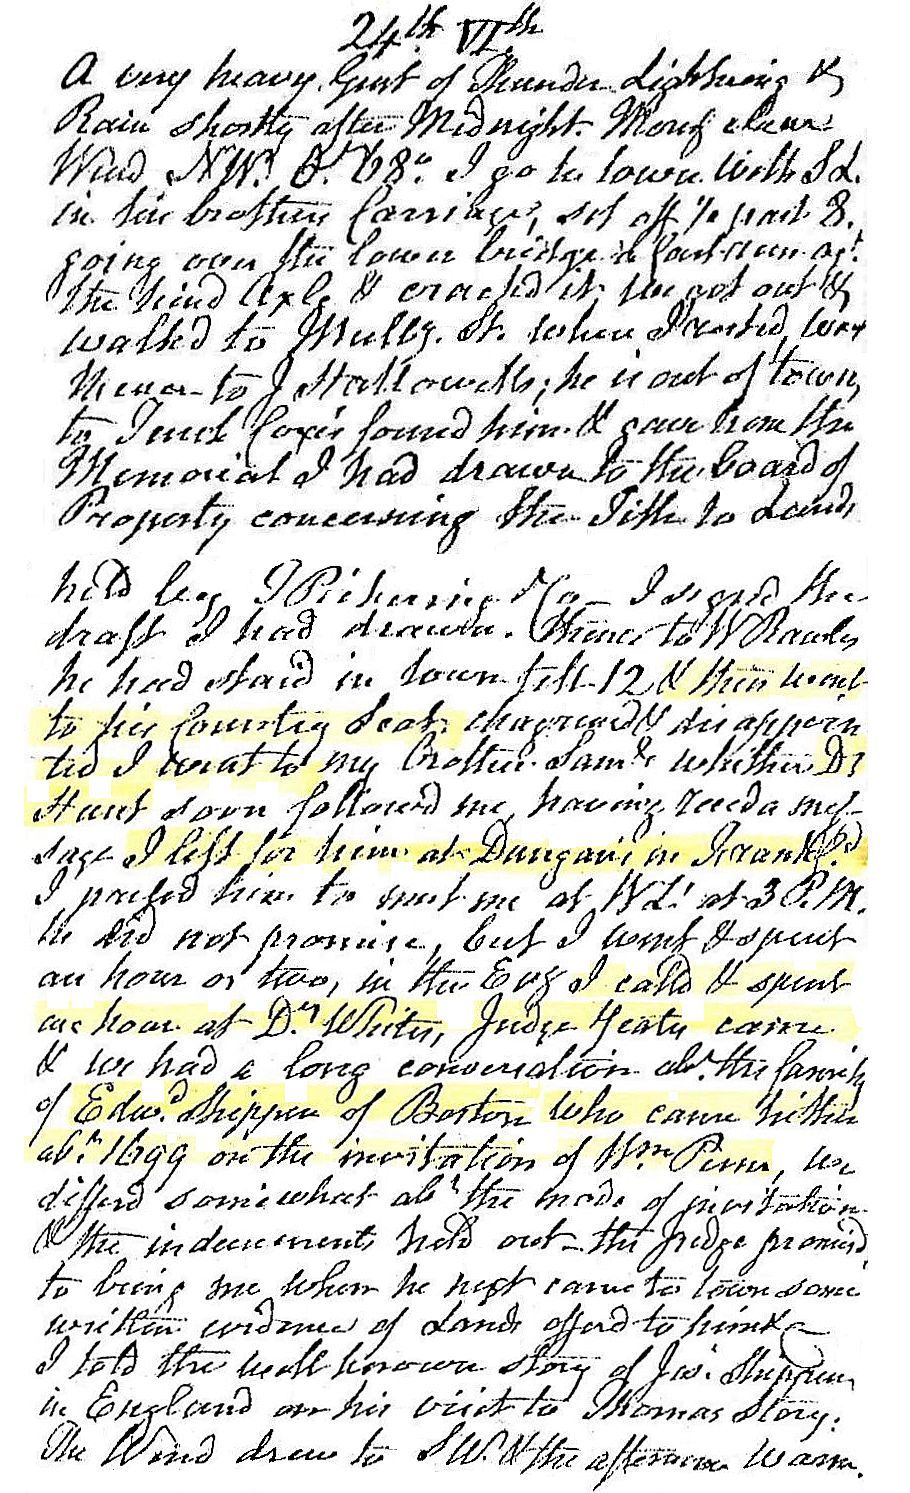 24th VIth
A very heavy Gust of Thunder Lightning &
Rain shortly after Midnight. Morng clear
Wind NW. 68°. I go to town with S L.
in his brothers Carriage, set off ½ past 8.
going over the lower bridge a foul run agt
the hind Axle & cracked it, we got out &
walked to Mulby. St. where I rested, went
thence to J Hallowells; he is out of town,
to Tench Coxes found him & gave him the
Memorial I had drawn to the board of
Property concerning the Title to Lands
held by T Pickering & Co I signd the
draft I had drawn. Thence to W Rawles
he had staid in town till 12 & then went
to his Country Seat. chagrined & disappoin
ted I went to my Brother Saml. whither Dr
Hunt soon followed me, having recd a mes-
sage I left for him at Dungans in Frankfd.
I pressed him to meet me at W L's at 3 P.M.
he did not promise, but I went & spent
an hour or two, in the Evg I calld & spent
an hour at Dr. Whites, Judge Yeates came
& we had a long conversation abt. the family
of Edwd. Shippen of Boston who came hither
abt. 1699 on the invitation of Wm Penn, we
differd somewhat abt the mode of invitation
& the inducements held out - the Judge promisd
to bring me when he next came to town some
written evidence of Lands offerd to him &c
I told the well known story of Jos. Shippen
in England on his visit to Thomas Story.
The Wind drew to SW. & the afternoon warm.